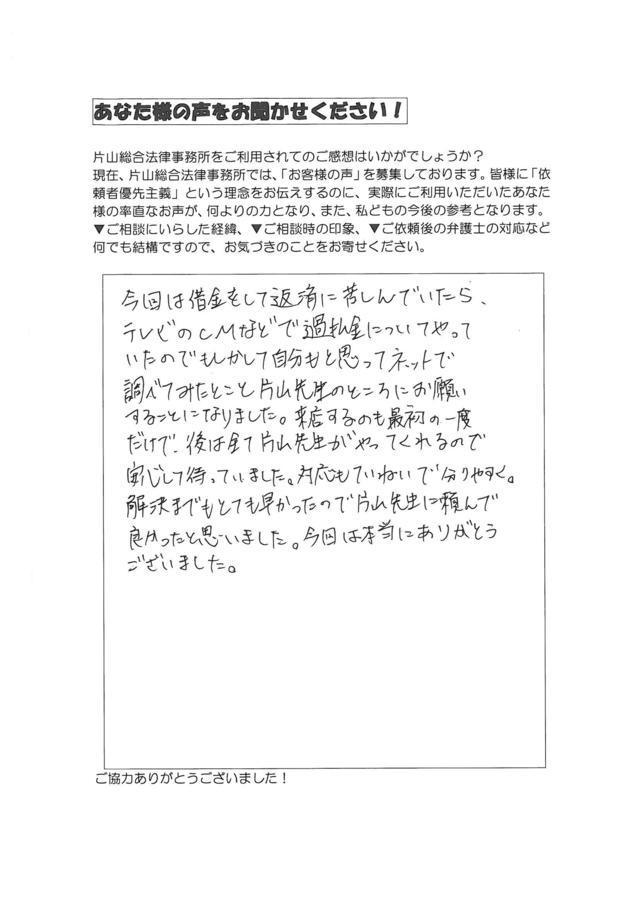 あなた様の声をお聞かせください！
片山総合法律事務所をご利用されてのご感想はいかがでしょうか？
現在、片山総合法律事務所では、「お客様の声」を募集しております。皆様に「依
頼者優先主義」という理念をお伝えするのに、実際にご利用いただいたあなた
様の率直なお声が、何よりの力となり、また、私どもの今後の参考となります。
▼ご相談にいらした経緯、▼ご相談時の印象、▼ご依頼後の弁護士の対応など
何でも結構ですので、お気づきのことをお寄せください。
今回は借金をして返済に苦しんでいたら、
テレビのCMなどで過払金についてやって
いたのでもしかして自分もと思ってネットで
調べてみたとこと片山先生のところにお願い
することになりました。来店するのも最初の一度
だけで、後は全て片山先生がやってくれるので
安心して待っていました。対応もていねいで分りやすく。
解決までもとても早かったので片山先生に頼んで
良かったと思いました。今回は本当にありがとう
ございました。
ご協力ありがとうございました！